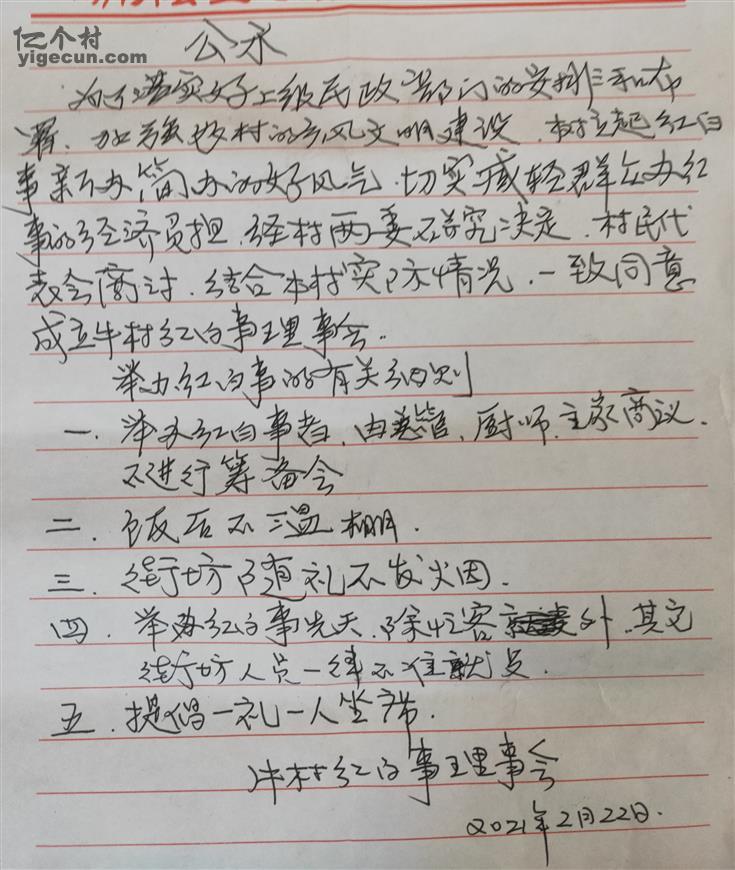 亿个村
yigecun.com
公示
为了落实好上级民政部门的安排和布
署，加强农村的乡风文明建设，树立起红白
事新办简办的好风气，切实减轻群众办红
事的经济负担，经村两委研究决定，村民代
表会商讨，结合本村实际情况，一致同意
成立牛村红白事理事会。
举办红白事的有关细则
一、举办红白事者，由总管、厨师、主家商议，
不进行筹备会
二、饭后不温棚。
三、街坊随礼不发火因。
四、举办红白事先天，除忙客外，其它
街坊人员一律不准就员。
五、提倡一礼一人坐席。
牛村红白事理事会
2021年2月22日.